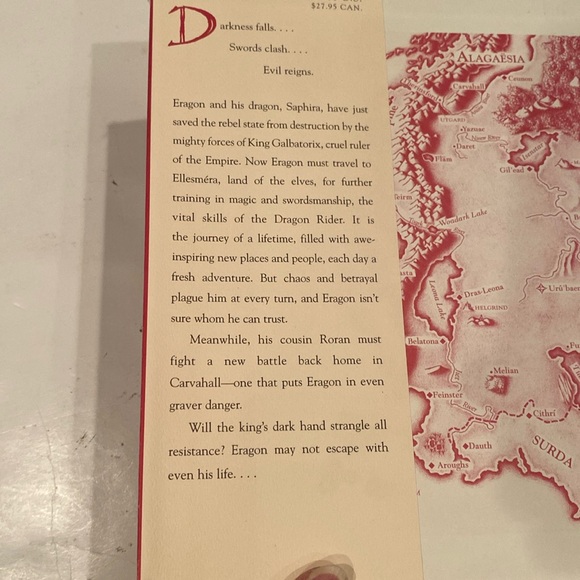 $27.95 CAN.
Darkness falls. . . .
Swords clash. . . .
Evil reigns.
Eragon and his dragon, Saphira, have just
saved the rebel state from destruction by the
mighty forces of King Galbatorix, cruel ruler
of the Empire. Now Eragon must travel to
Ellesméra, land of the elves, for further
training in magic and swordsmanship, the
vital skills of the Dragon Rider. It is
the journey of a lifetime, filled with awe-
inspiring new places and people, each day a
fresh adventure. But chaos and betrayal
plague him at every turn, and Eragon isn't
sure whom he can trust.
Meanwhile, his cousin Roran must
fight a new battle back home in
Carvahall—one that puts Eragon in even
graver danger.
Will the king's dark hand strangle all
resistance? Eragon may not escape with
even his life. . . .
ALAGAËSIA
Ceunon
Carvahall
UTGARD
Yazuac
Ninor River
Daret
Gil'ead
Woadark Lake
Leona Lake
Dras-Leona
HELGRIND
Urû'baen
Belatona
Melian
Feinster
River
Cithrí
Dauth
SURDA
Aroughs